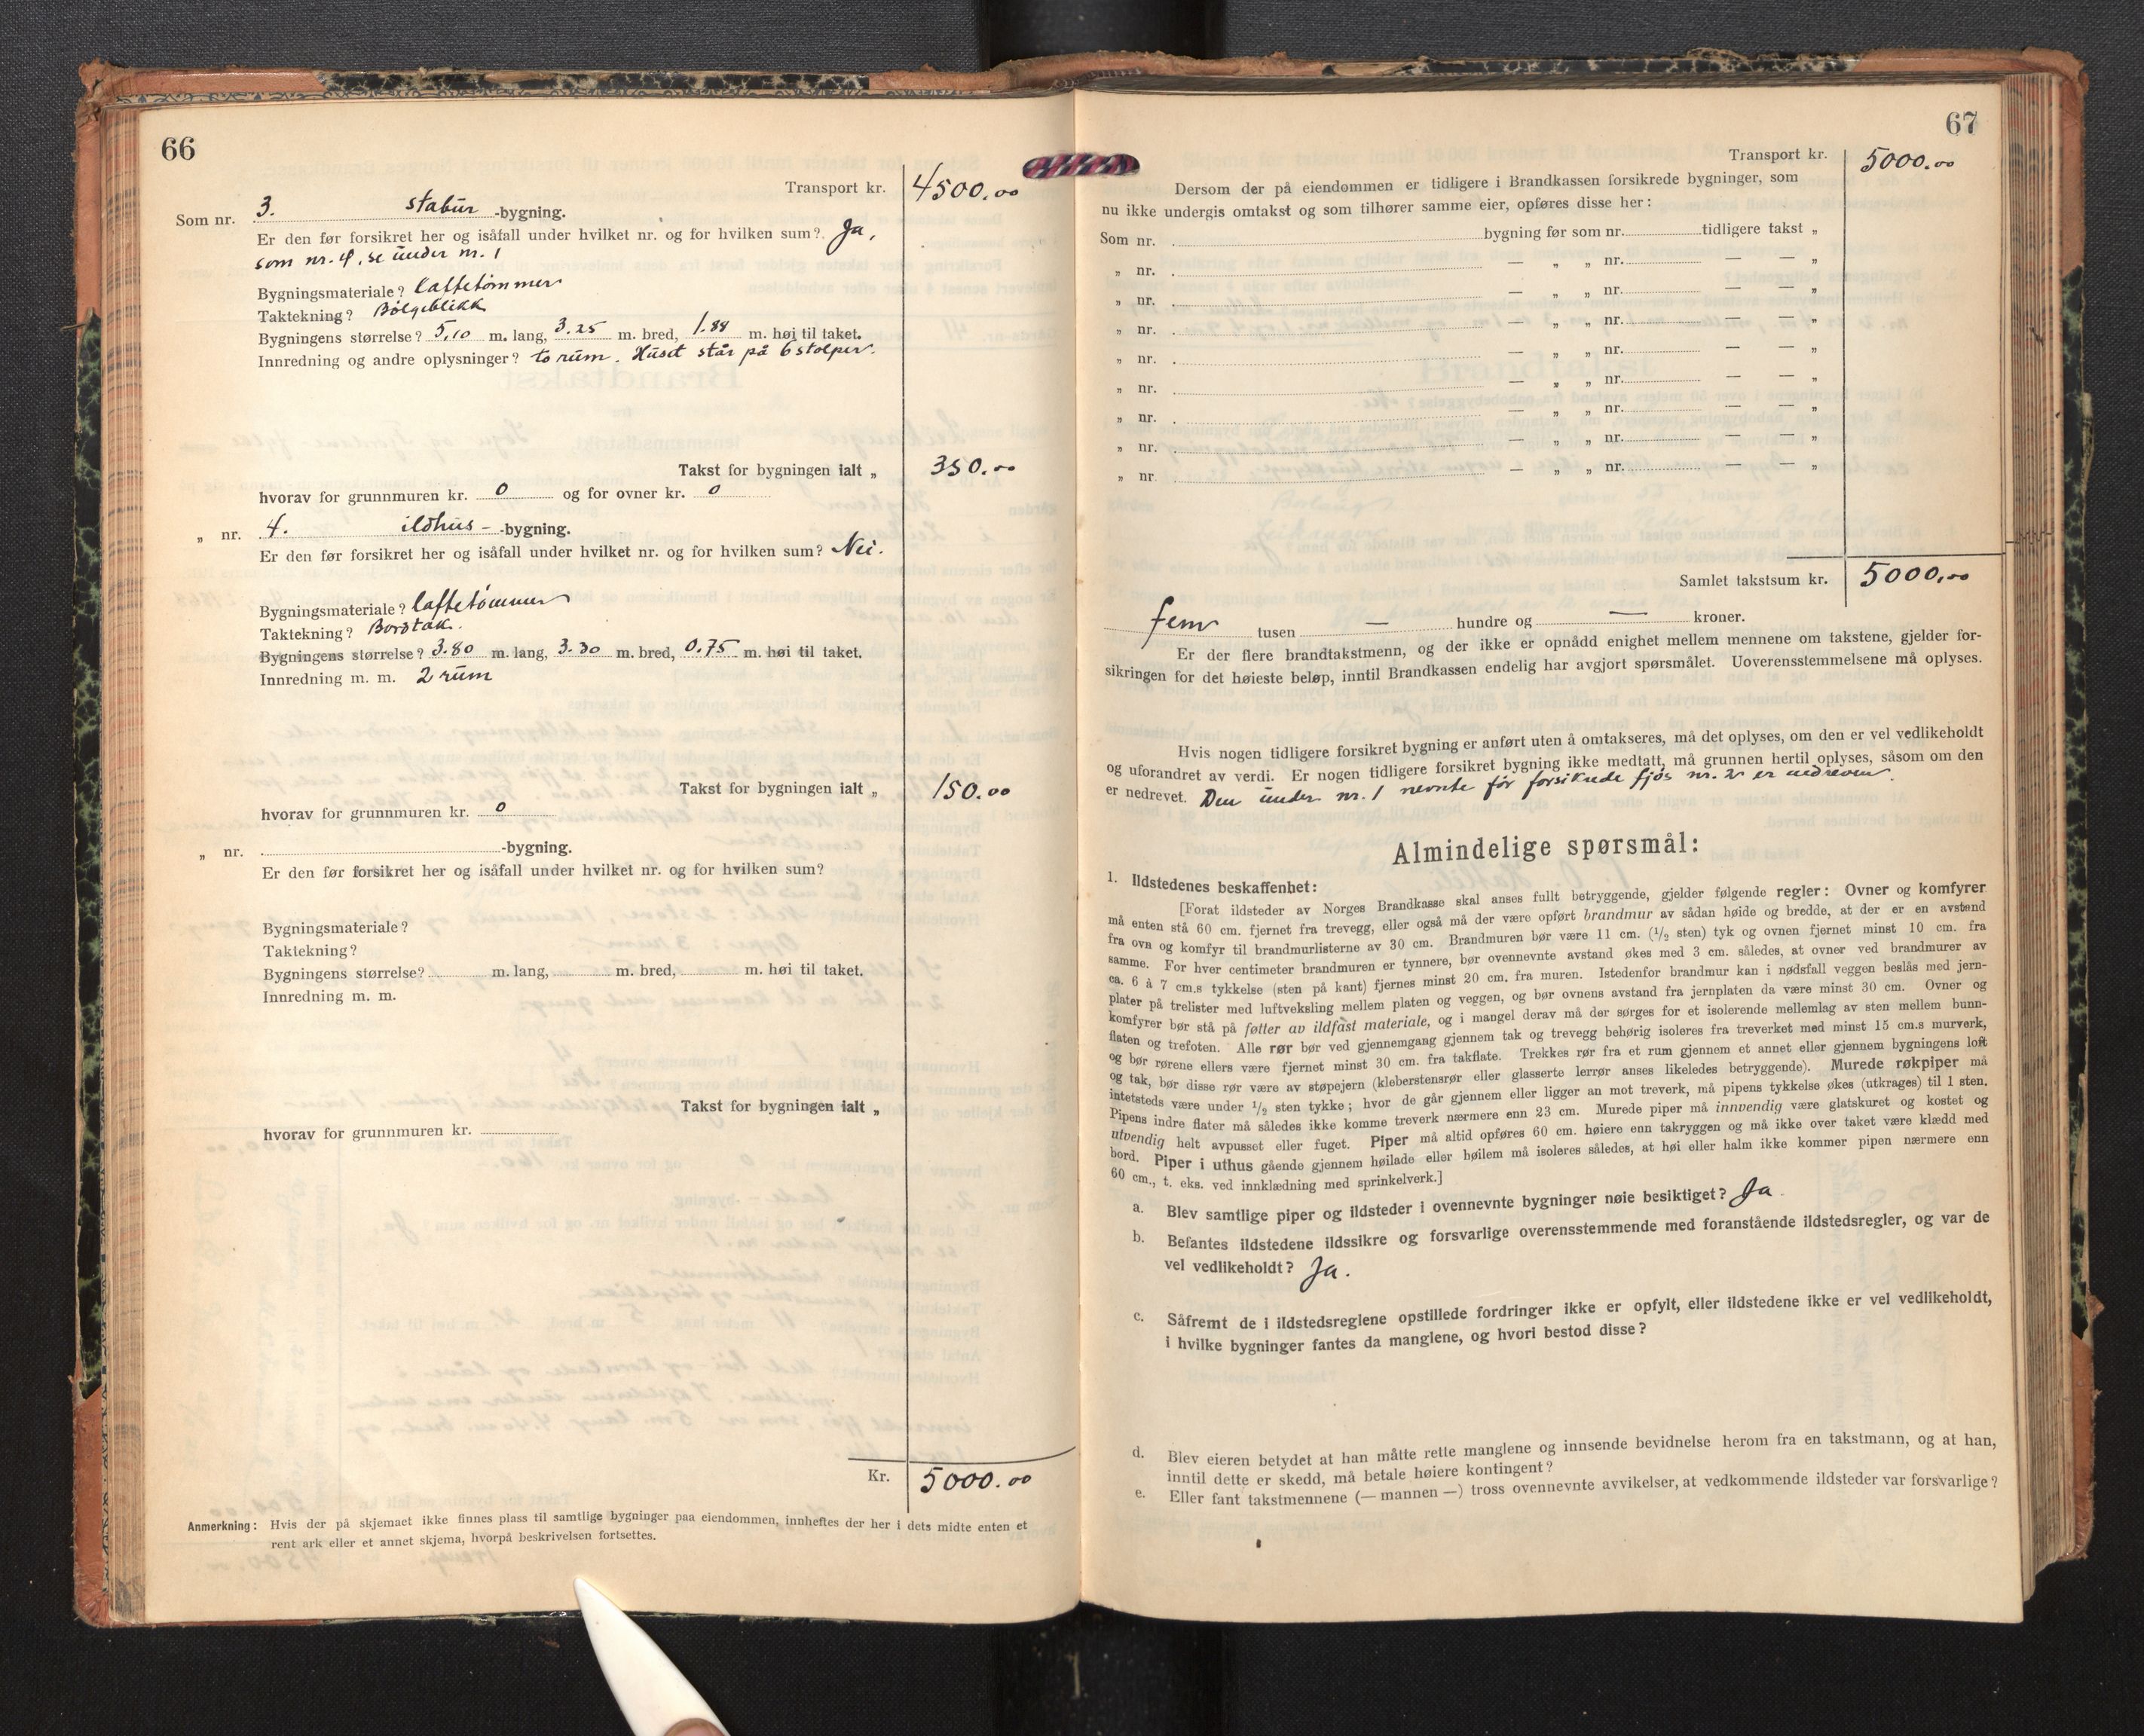 66
Transport kr. 4500.00
Som nr. 3. stabur -bygning.
Er den før forsikret her og isåfall under hvilket nr. og for hvilken sum? Ja,
som nr. 4, se under nr. 1
Bygningsmateriale? Laftetømmer
Taktekning? Bølgeblikk
Bygningens størrelse? 5,10 m. lang, 3.25 m. bred, 1.88 m. høi til taket.
Innredning og andre oplysninger? to rum. Huset står på 6 stolper.
Takst for bygningen ialt „ 350.00
hvorav for grunnmuren kr. 0 og for ovner kr. 0
„ nr. 4. ildhus - -bygning.
Er den før forsikret her og isåfall under hvilket nr. og for hvilken sum? Nei.
Bygningsmateriale? laftetømmer
Taktekning? Bordtak.
Bygningens størrelse? 3.80 m. lang, 3.30 m. bred, 0.75 m. høi til taket.
Innredning m. m. 2 rum
Takst for bygningen ialt „ 150.00
hvorav for grunnmuren kr. 0
„ nr. -bygning.
Er den før forsikret her og isåfall under hvilket nr. og for hvilken sum?
Bygningsmateriale?
Taktekning?
Bygningens størrelse? m. lang, m. bred, m. høi til taket.
Innredning m. m.
Takst for bygningen ialt „
hvorav for grunnmuren kr.
Kr. 5000.00
Anmerkning: Hvis der på skjemaet ikke finnes plass til samtlige bygninger paa eiendommen, innheftes der her i dets midte enten et
rent ark eller et annet skjema, hvorpå beskrivelsen fortsettes.
67
Transport kr. 5000.00
Dersom der på eiendommen er tidligere i Brandkassen forsikrede bygninger, som
nu ikke undergis omtakst og som tilhører samme eier, opføres disse her:
Som nr. bygning før som nr. tidligere takst „
„ nr. — „ „ nr. — — „
„ nr. — „ „ nr. — — „
„ nr. — „ „ nr. — — „
„ nr. — „ „ nr. — — „
„ nr. — „ „ nr. — — „
„ nr. — „ „ nr. — — „
„ nr. — „ „ nr. — — „
„ nr. — „ „ nr. — — „
Samlet takstsum kr. 5000,00
fem tusen — hundre og — kroner.
Er der flere brandtakstmenn, og der ikke er opnådd enighet mellem mennene om takstene, gjelder for-
sikringen for det høieste beløp, inntil Brandkassen endelig har avgjort spørsmålet. Uoverensstemmelsene må oplyses.
Hvis nogen tidligere forsikret bygning er anført uten å omtakseres, må det oplyses, om den er vel vedlikeholdt
og uforandret av verdi. Er nogen tidligere forsikret bygning ikke medtatt, må grunnen hertil oplyses, såsom om den
er nedrevet. Den under nr. 1 nevnte før forsikrede fjøs nr. 2 er nedreven.
Almindelige spørsmål:
1. Ildstedenes beskaffenhet:
[Forat ildsteder av Norges Brandkasse skal anses fullt betryggende, gjelder følgende regler: Ovner og komfyrer
må enten stå 60 cm. fjernet fra trevegg, eller også må der være opført brandmur av sådan høide og bredde, at der er en avstand
fra ovn og komfyr til brandmurlisterne av 30 cm. Brandmuren bør være 11 cm. (1/2 sten) tyk og ovnen fjernet minst 10 cm. fra
samme. For hver centimeter brandmuren er tynnere, bør ovennevnte avstand økes med 3 cm. således, at ovner ved brandmurer av
ca. 6 à 7 cm.s tykkelse (sten på kant) fjernes minst 20 cm. fra muren. Istedenfor brandmur kan i nødsfall veggen beslås med jern-
plater på trelister med luftveksling mellem platen og veggen, og bør ovnens avstand fra jernplaten da være minst 30 cm. Ovner og
komfyrer bør stå på føtter av ildfast materiale, og i mangel derav må der sørges for et isolerende mellemlag av sten mellem bunn-
flaten og trefoten. Alle rør bør ved gjennemgang gjennem tak og trevegg behørig isoleres fra treverket med minst 15 cm.s murverk,
og bør rørene ellers være fjernet minst 30 cm. fra takflate. Trekkes rør fra et rum gjennem et annet eller gjennem bygningens loft
og tak, bør disse rør være av støpejern (kleberstensrør eller glasserte lerrør anses likeledes betryggende). Murede røkpiper må
intetsteds være under 1/2 sten tykke; hvor de går gjennem eller ligger an mot treverk, må pipens tykkelse økes (utkrages) til 1 sten.
Pipens indre flater må således ikke komme treverk nærmere enn 23 cm. Murede piper må innvendig være glatskuret og kostet og
utvendig helt avpusset eller fuget. Piper må altid opføres 60 cm. høiere enn takryggen og må ikke over taket være klædd med
bord. Piper i uthus gående gjennem høilade eller høilem må isoleres således, at høi eller halm ikke kommer pipen nærmere enn
60 cm., t. eks. ved innklædning med sprinkelverk.]
a. Blev samtlige piper og ildsteder i ovennevnte bygninger nøie besiktiget? Ja.
b. Befantes ildstedene ildssikre og forsvarlige overensstemmende med foranstående ildstedsregler, og var de
vel vedlikeholdt? Ja.
c. Såfremt de i ildstedsreglene opstillede fordringer ikke er opfylt, eller ildstedene ikke er vel vedlikeholdt,
i hvilke bygninger fantes da manglene, og hvori bestod disse?
d. Blev eieren betydet at han måtte rette manglene og innsende bevidnelse herom fra en takstmann, og at han,
inntil dette er skedd, må betale høiere kontingent?
e. Eller fant takstmennene (— mannen —) tross ovennevnte avvikelser, at vedkommende ildsteder var forsvarlige?